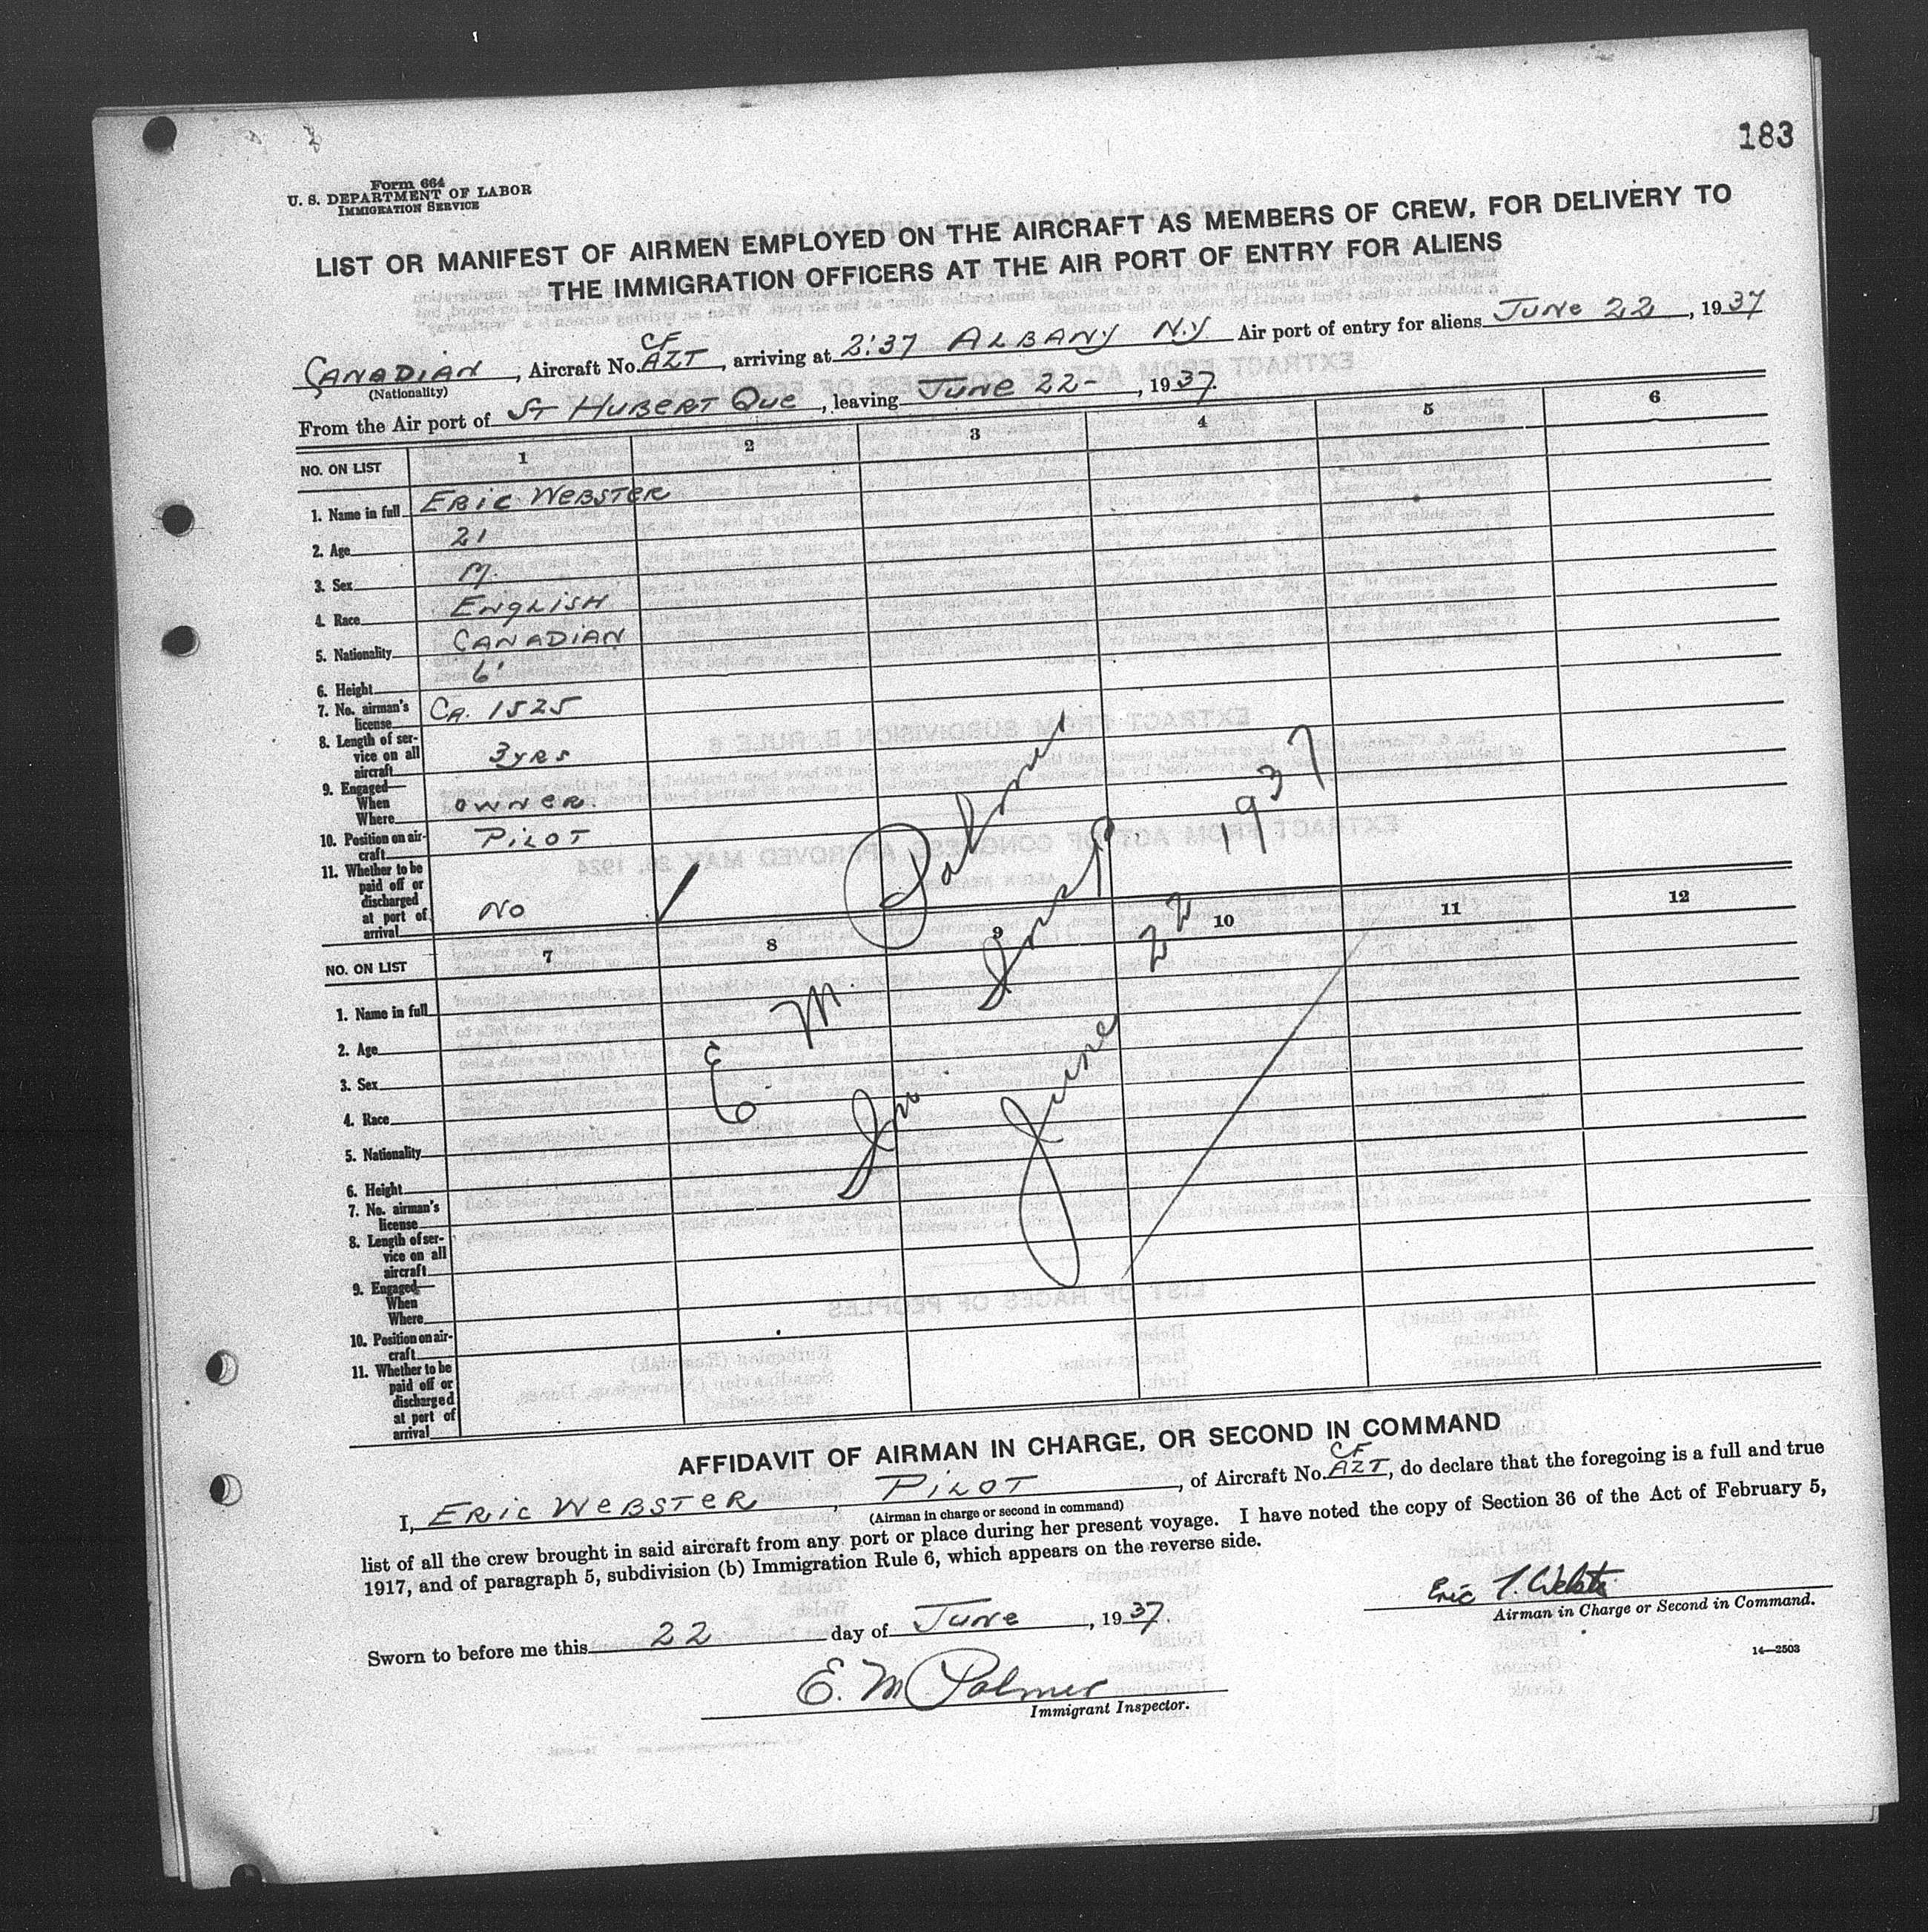 183
Form 664
U. S. DEPARTMENT OF LABOR
IMMIGRATION SERVICE
LIST OR MANIFEST OF AIRMEN EMPLOYED ON THE AIRCRAFT AS MEMBERS OF CREW, FOR DELIVERY TO
THE IMMIGRATION OFFICERS AT THE AIR PORT OF ENTRY FOR ALIENS
CANADIAN, Aircraft No. CF AZT, arriving at 2:37 ALBANY N.Y Air port of entry for aliens June 22, 1937
(Nationality)
From the Air port of ST HUBERT QUE, leaving June 22-, 1937.
NO. ON LIST 1 2 3 4 5 6
1. Name in full ERIC WEBSTER
2. Age 21
3. Sex M.
4. Race ENGLISH
5. Nationality CANADIAN
6. Height 6'
7. No. airman's license CA. 1525
8. Length of service on all aircraft 3 yrs
9. Engaged— When Where OWNER.
10. Position on aircraft PILOT
11. Whether to be paid off or discharged at port of arrival No
E M Palmer
Im Insp
June 22 1937
NO. ON LIST 7 8 9 10 11 12
1. Name in full
2. Age
3. Sex
4. Race
5. Nationality
6. Height
7. No. airman's license
8. Length of service on all aircraft
9. Engaged— When Where
10. Position on aircraft
11. Whether to be paid off or discharged at port of arrival
AFFIDAVIT OF AIRMAN IN CHARGE, OR SECOND IN COMMAND
I, ERIC WEBSTER, PILOT, of Aircraft No. CF AZT, do declare that the foregoing is a full and true
(Airman in charge or second in command)
list of all the crew brought in said aircraft from any port or place during her present voyage. I have noted the copy of Section 36 of the Act of February 5,
1917, and of paragraph 5, subdivision (b) Immigration Rule 6, which appears on the reverse side.
Eric T. Webster
Airman in Charge or Second in Command.
Sworn to before me this 22 day of June, 1937.
14—2503
E. M Palmer
Immigrant Inspector.